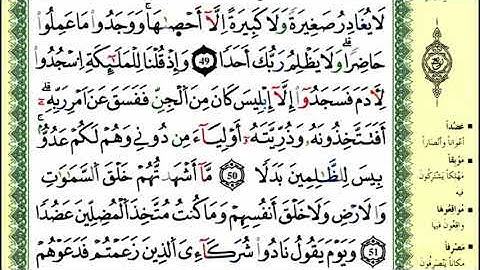 لَا يُغَادِرُ صَغِيرَةً وَلَا كَبِيرَةً إِلَّآ أَحْصَىٰهَا ۚ وَوَجَدُوا۟ مَا عَمِلُوا۟
حَاضِرًا ۗ وَلَا يَظْلِمُ رَبُّكَ أَحَدًا ٤٩ وَإِذْ قُلْنَا لِلْمَلَـٰٓئِكَةِ ٱسْجُدُوا۟
لِأٓدَمَ فَسَجَدُوٓا۟ إِلَّآ إِبْلِيسَ كَانَ مِنَ ٱلْجِنِّ فَفَسَقَ عَنْ أَمْرِ رَبِّهِۦٓ ۗ
أَفَتَتَّخِذُونَهُۥ وَذُرِّيَّتَهُۥٓ أَوْلِيَآءَ مِن دُونِى وَهُمْ لَكُمْ عَدُوٌّۢ ۚ
بِيسَ لِلظَّـٰلِمِينَ بَدَلًا ٥٠ مَّآ أَشْهَدتُّهُمْ خَلْقَ ٱلسَّمَـٰوَٰتِ
وَٱلْأَرْضِ وَلَا خَلْقَ أَنفُسِهِمْ وَمَا كُنتُ مُتَّخِذَ ٱلْمُضِلِّينَ عَضُدًا
٥١ وَيَوْمَ يَقُولُ نَادُوا۟ شُرَكَآءِىَ ٱلَّذِينَ زَعَمْتُمْ فَدَعَوْهُمْ
ربع
عَضُداً
أعواناً وأنصاراً
مَوْبِقاً
مهلكاً يشتركون
فيه
مُوَاقِعُوهَا
واقعون فيها
مَصْرِفاً
مكاناً ينصرفون